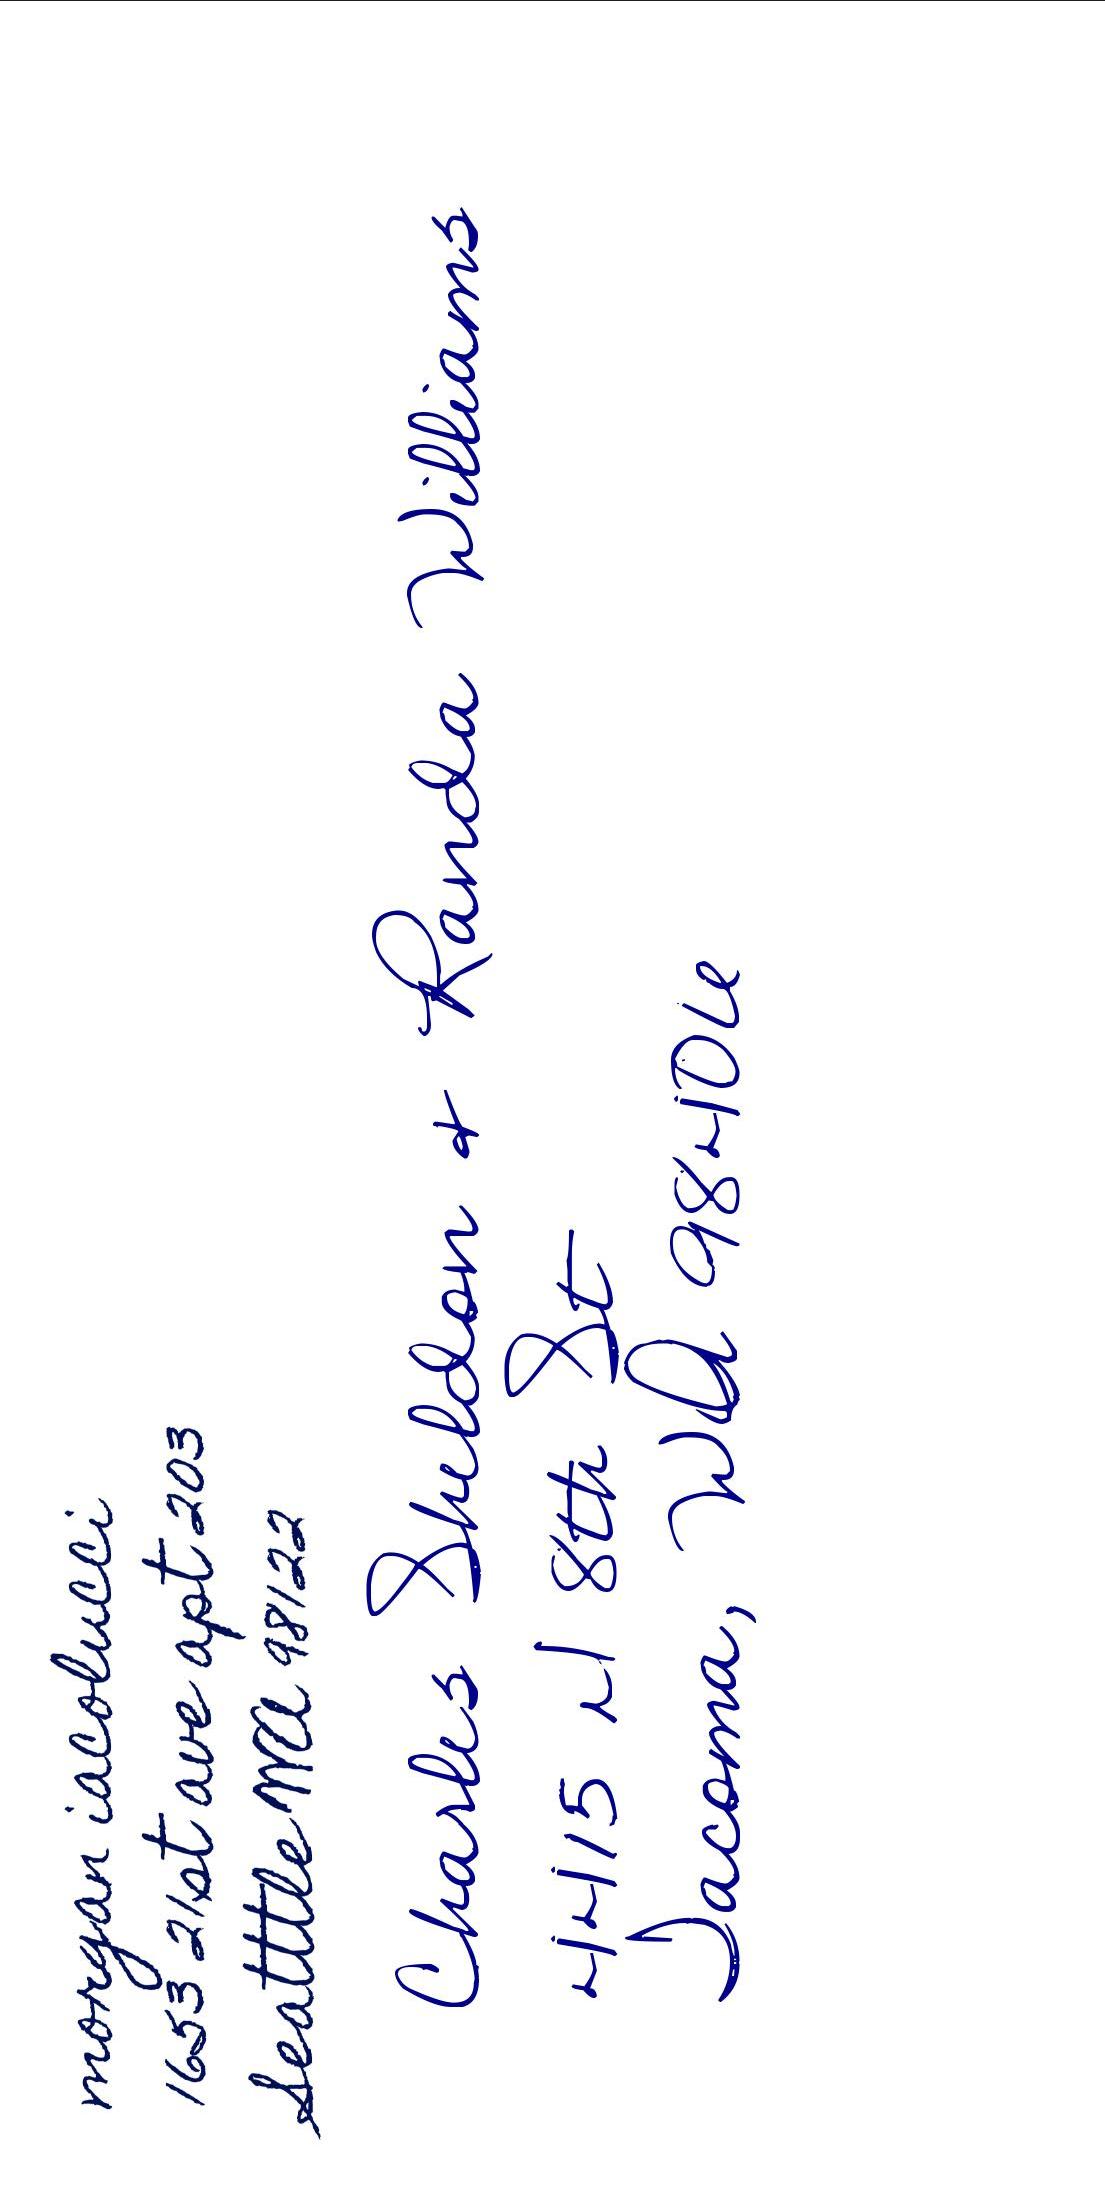 morgan iacolucci
1653 21st ave apt 203
Seattle WA 98122
Charles Sheldon & Randa Williams
4415 N 8th St
Tacoma, WA 98406